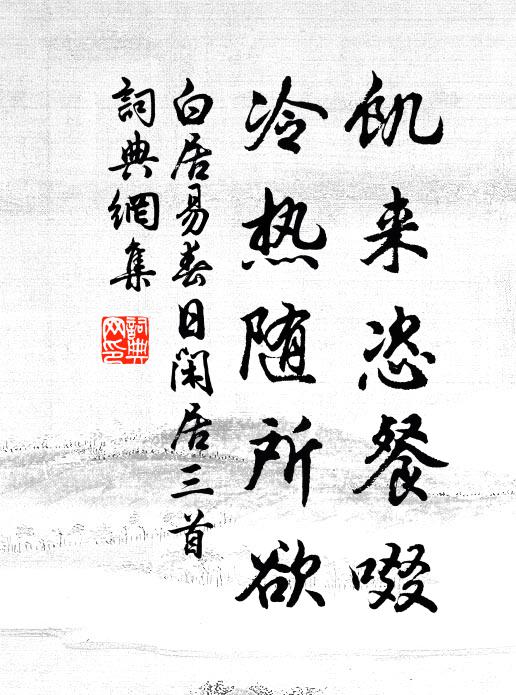 飢来恣餐啜
冷热随所欲
白居易春日閑居三首
詞典網集
詞典
网印